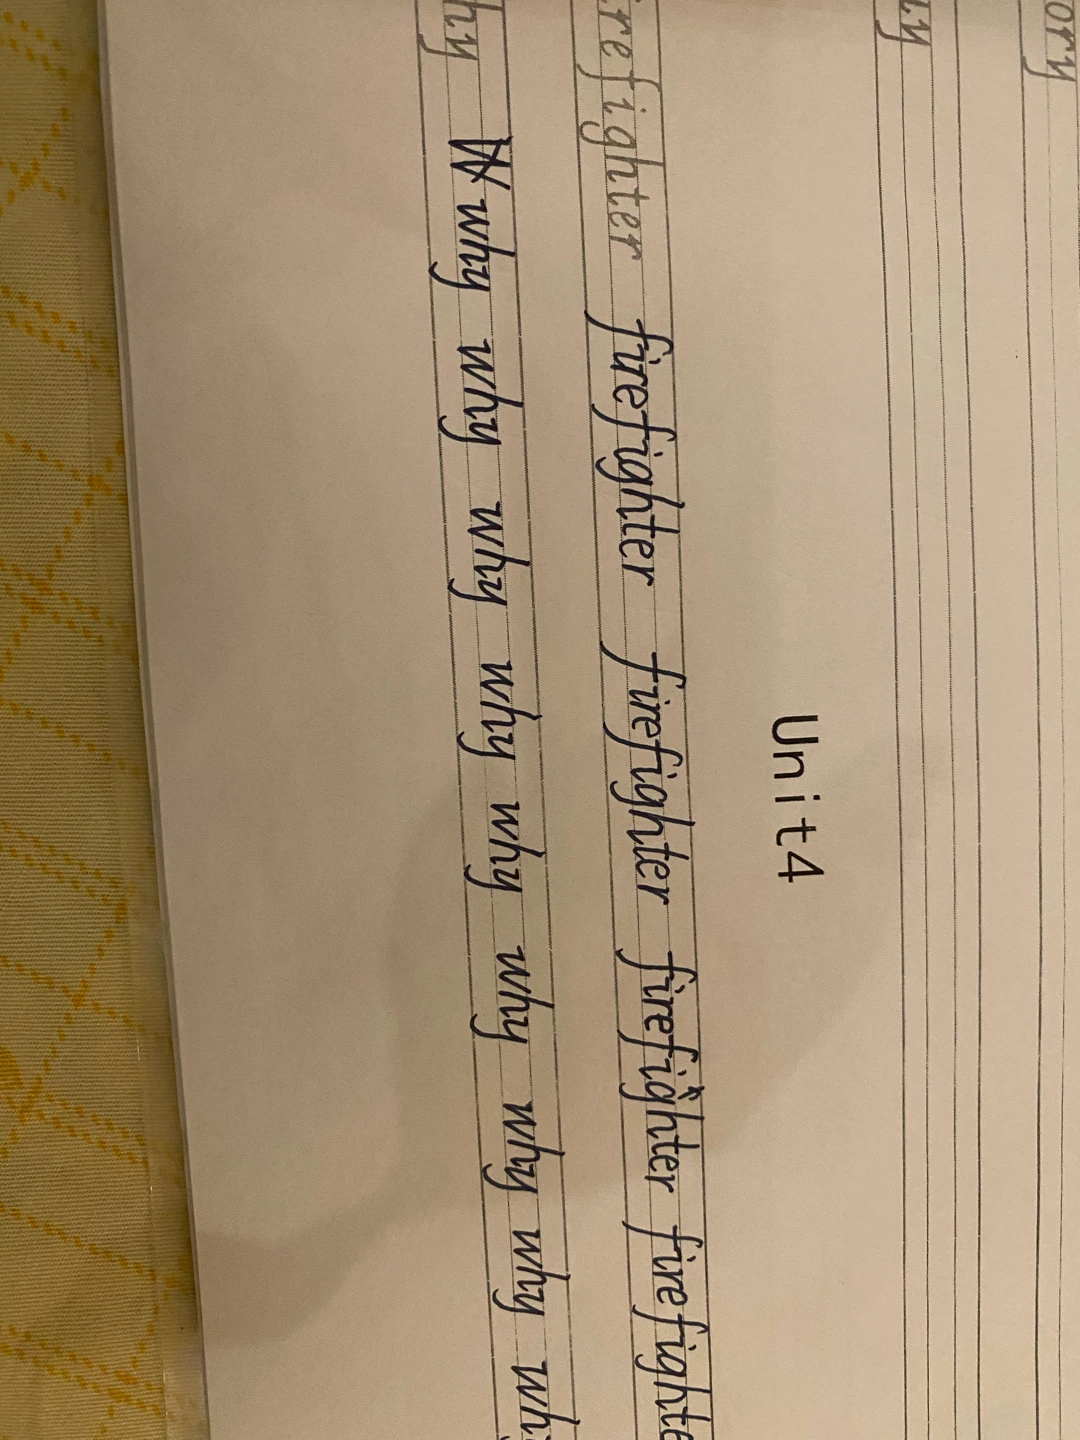 ory
Unit4
refighter firefighter firefighter firefighter firefighte
hy why why why why why why why why wh